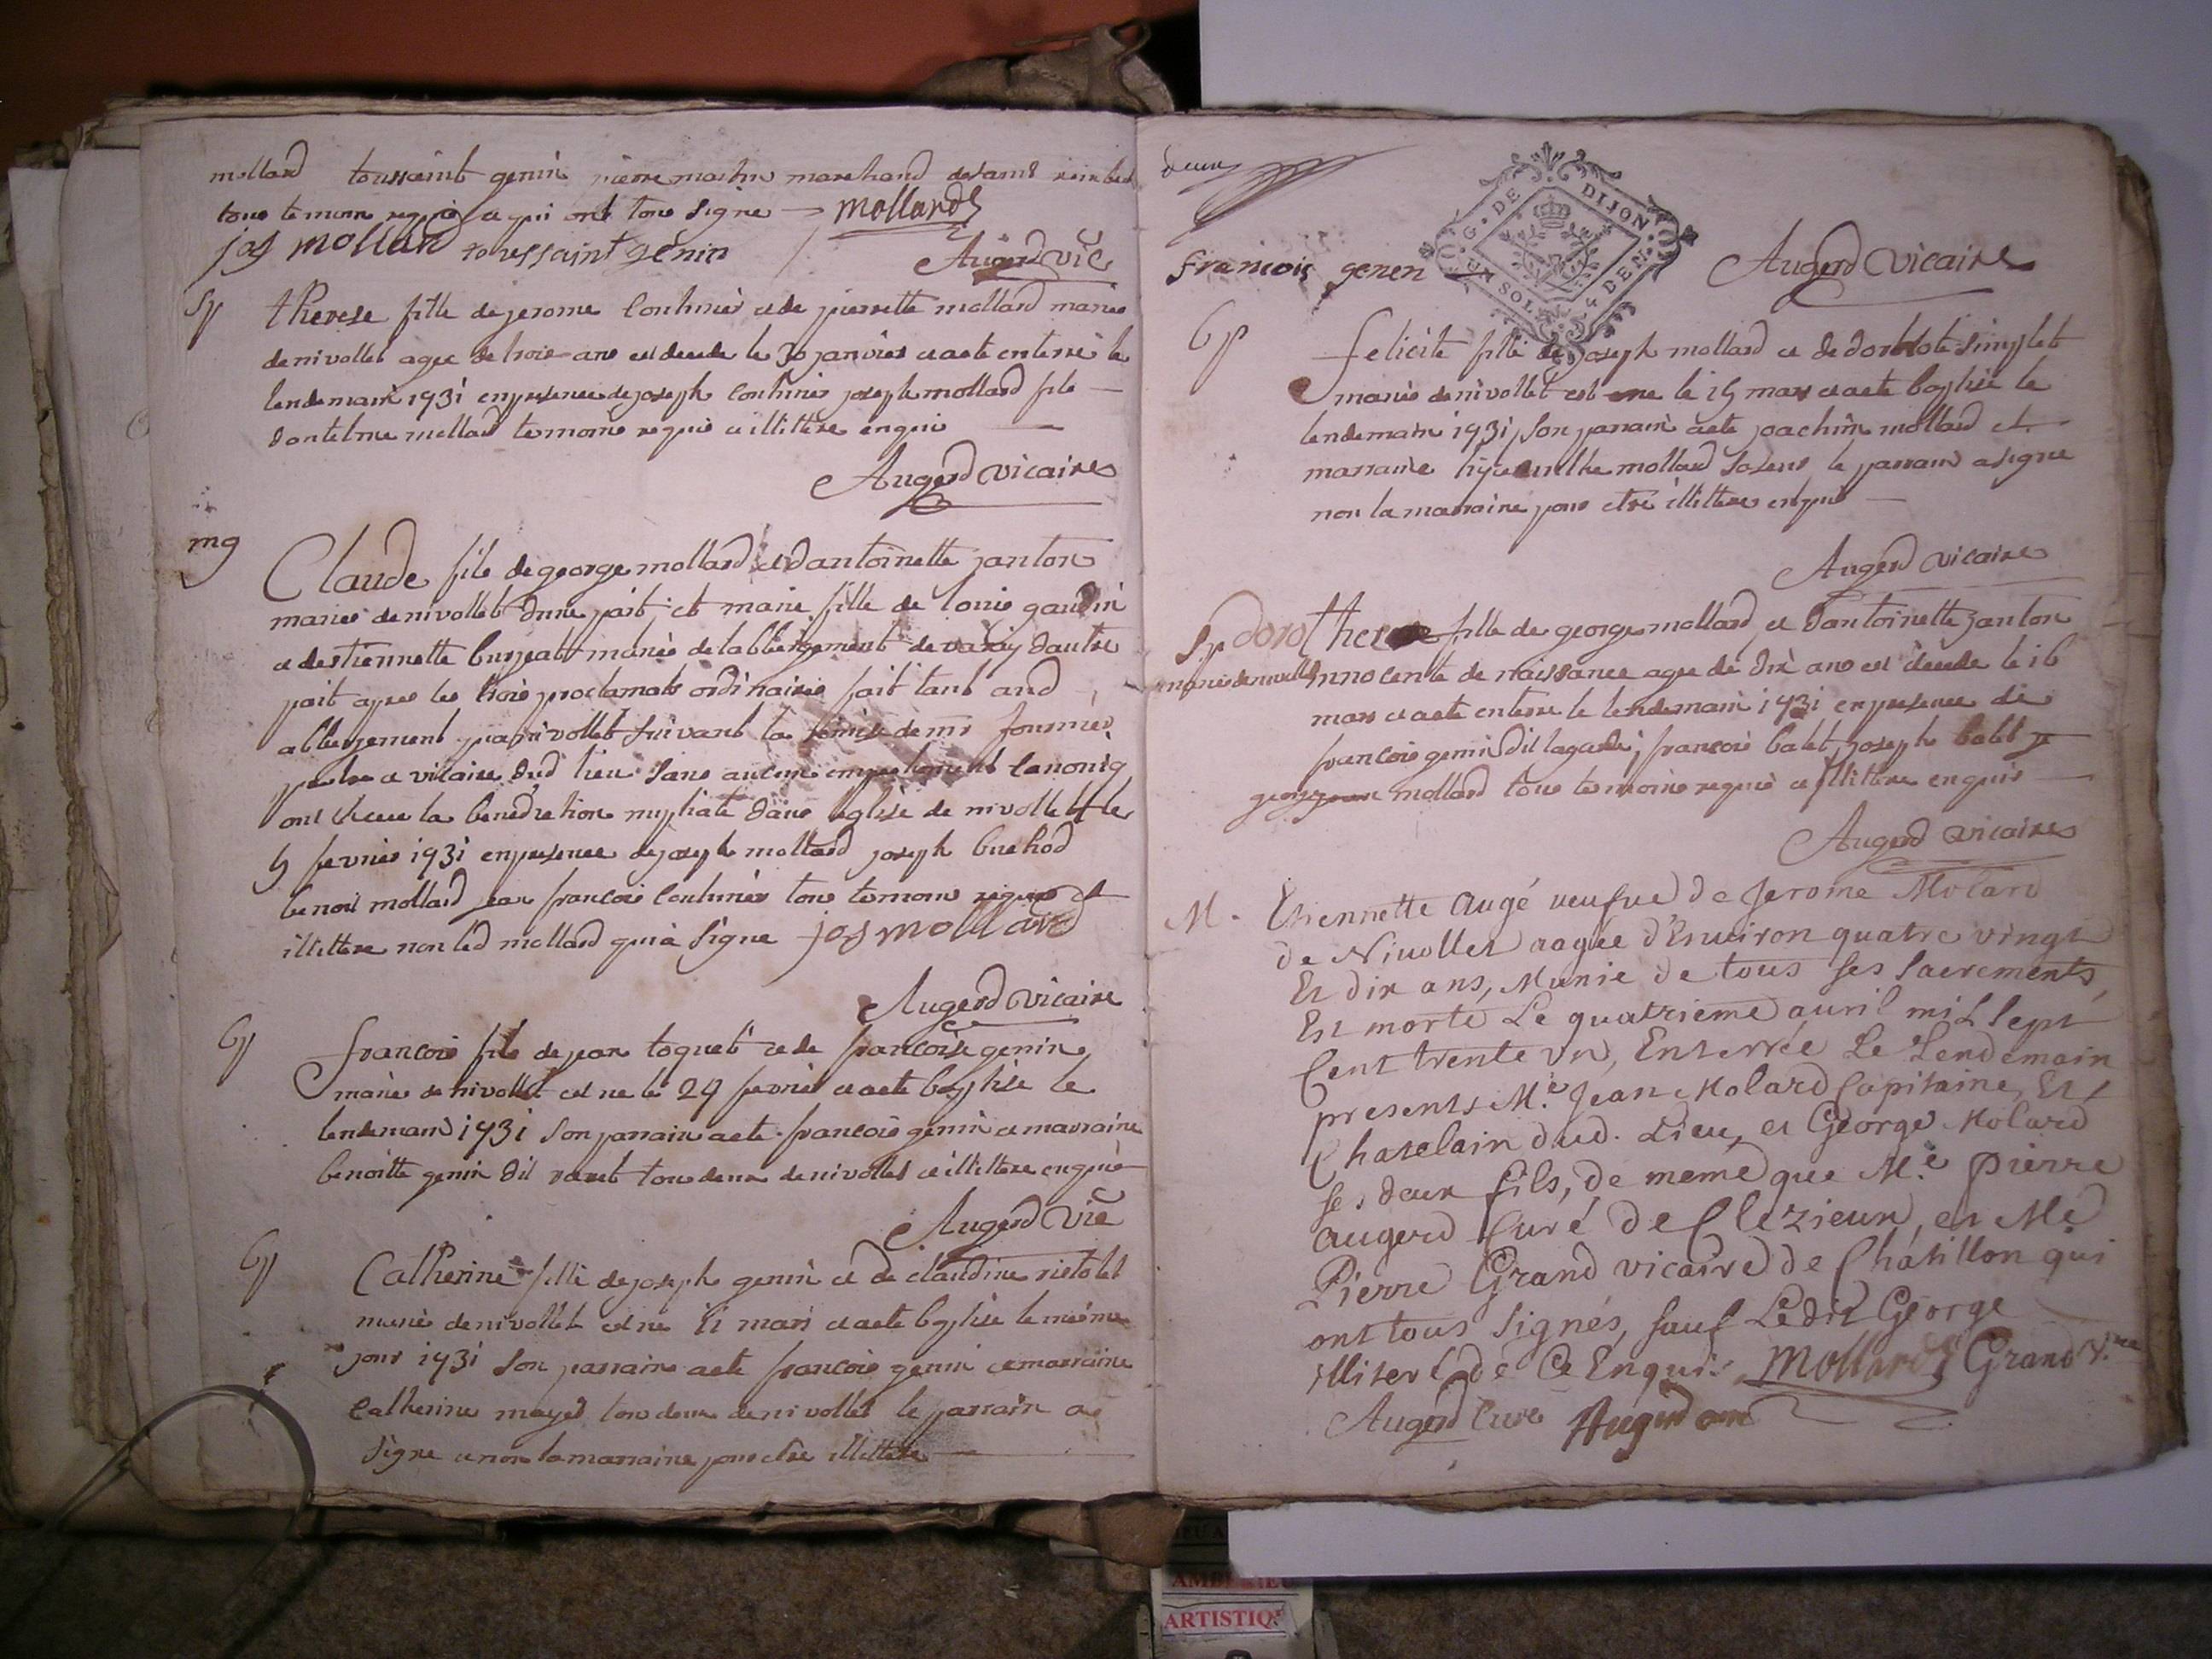 mollard toussaint genin pierre martin marchand
tous temoin requis et qui ont tous signe mollard
jos mollard toussaint genin
Augerd vic
Sp therese fille de jerome couturier et de pierrette mollard maries
de nivollet agee de trois ans est decede le 30 janvier et a ete enterré le
lendemain 1731 en presence de joseph couturier joseph mollard fils
dantelme mollard temoins requis et illittere enquis
Augerd vicaire
mg Claude fils de george mollard et dantoinette janton
maries de nivollet dune part et marie fille de louis gaudin
et destiennette maries de labbergement de varey dautre
part apres les trois proclamats ordinaires fait tant aud
abbergement qua nivollet suivant la remise de mr fournier
pretre et vicaire dud lieu sans aucun empechement canoniq
ont receu la benediction nuptiale dans leglise de nivollet le
9 fevrier 1731 en presence de joseph mollard joseph buchod
benoit mollard jean francois couturier tous temoins requis et
illittere non led mollard qui a signe jos mollard
Augerd vicaire
bp francois fils de jean toquet et de francoise genin
maries de nivollet est ne le 27 fevrier et a ete baptise le
lendemain 1731 son parrain a ete francois genin et marraine
benoitte genin dit tous deux de nivollet et illittere enquis
Augerd vic
bp Catherine fille de joseph genin et de claudine
maries de nivollet est ne mars et a ete baptisée le meme
jour 1731 son parrain a ete francois genin et marraine
catherine mayet tous deux de nivollet le parrain a
signe et non la marraine pour etre illittere
deux
G. DE DIJON
UN SOL DEN
francois genen Augerd vicaire
bp felicite fille de joseph mollard et de dorothote simplet
maries de nivollet est nee le 15 mars et a ete baptisée le
lendemain 1731 son parrain a ete joachim mollard et
marraine hyacinthe mollard le parrain a signe
non la marraine pour etre illittere enquis
Augerd vicaire
Sp dorothee fille de george mollard et dantoinette janton
maries de nivollet innocente de naissance agee de dix ans est decede le 16
mars et a ete enterre le lendemain 1731 en presence de
francois genin dit lagarde, francois balet joseph balet
george mollard tous temoins requis et illittere enquis
Augerd vicaire
M. Etiennette Augé veufve de Jerome Molard
de Nivollet aagée d'Environ quatre vingt
Et dix ans, Munie de tous ses sacrements,
Est morte Le quatrieme avril mil sept
Cent trente un, Enterrée Le Lendemain
presents M.e Jean Molard Capitaine, Et
Chatelain dud. Lieu, et George Molard
ses deux fils, de meme que M.e pierre
Augerd Curé de Clezieux, et M.e
Pierre Grand vicaire de Chatillon qui
ont tous signés, sauf Ledit George
illiteré de Ce Enquis Mollard Grand V.re
Augerd Curé Augerd
AMBERIEU
ARTISTIQ